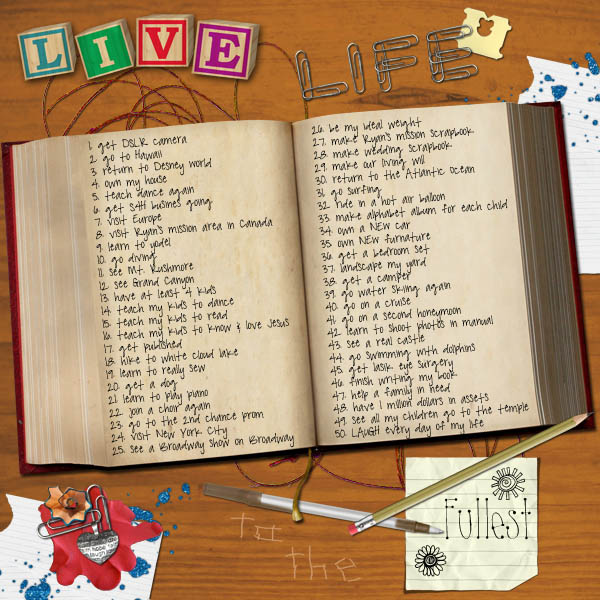 LIVE
LIFE
1. get DSLR camera
2. go to Hawaii
3. return to Desney world
4. own my house
5. teach dance again
6. get S4H busines going
7. visit Europe
8. visit Ryan's mission area in Canada
9. learn to yodel
10. go diving
11. see Mt. Rushmore
12. see Grand Canyon
13. have at least 4 kids
14. teach my kids to dance
15. teach my kids to read
16. teach my kids to know & love Jesus
17. get published
18. hike to white cloud lake
19. learn to really sew
20. get a dog
21. learn to play piano
22. join a choir again
23. go to the 2nd chance prom
24. visit New York City
25. see a Broadway show on Broadway
26. be my ideal weight
27. make Ryan's mission scrapbook
28. make wedding scrapbook
29. make our living will
30. return to the Atlantic ocean
31. go surfing
32. ride in a hot air balloon
33. make alphabet album for each child
34. own a NEW car
35. own NEW furnature
36. get a bedroom set
37. landscape my yard
38. get a camper
39. go water skiing again
40. go on a cruise
41. go on a second honeymoon
42. learn to shoot photos in manual
43. see a real castle
44. go swimming with dolphins
45. get lasik eye surgery
46. finish writing my book
47. help a family in need
48. have 1 million dollars in assets
49. see all my children go to the temple
50. LAUGH every day of my life
to
the
Fullest
hope
laugh